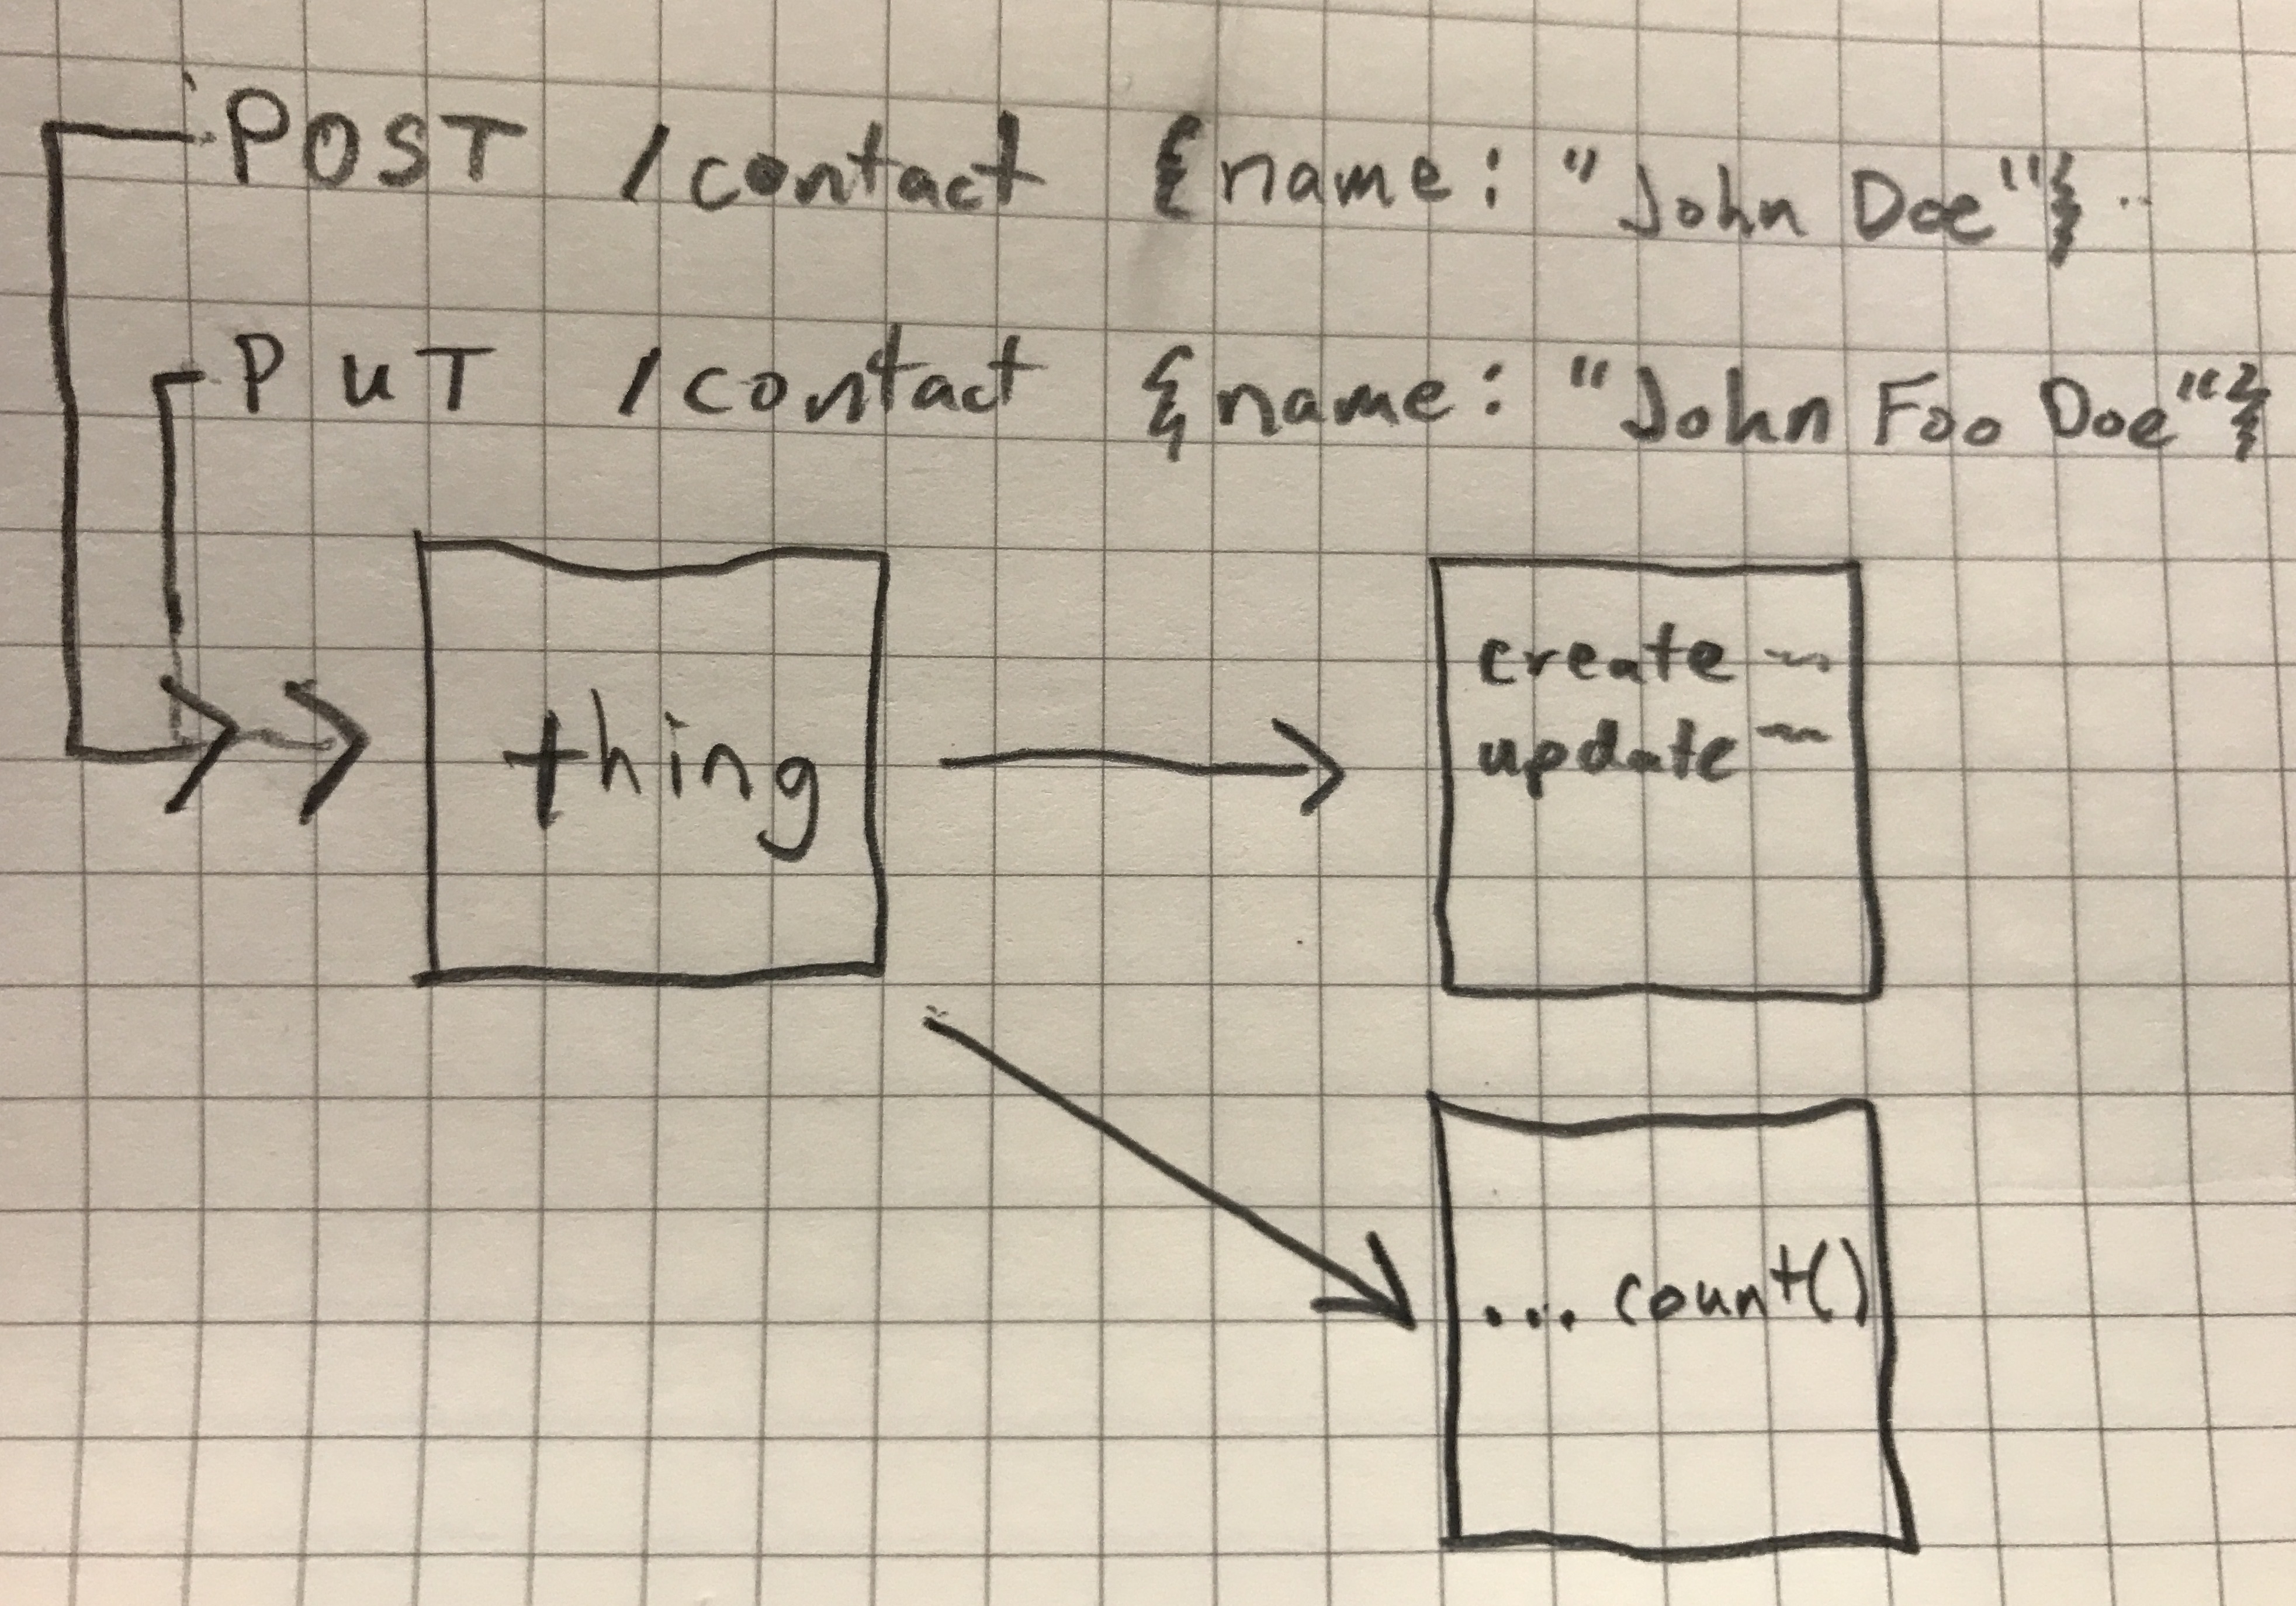 POST /contact {name: "John Doe"}
PUT /contact {name: "John Foo Doe"}
thing
create ~
update ~
... count()